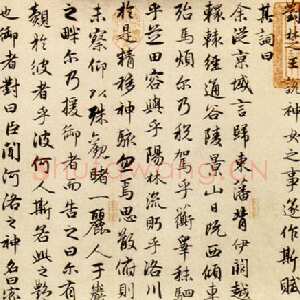 對楚王說神女之事遂作斯賦
其詞曰
余從京城言歸東藩背伊闕越
轘轅經通谷陵景山日既西傾車
殆馬煩尔乃稅駕乎蘅皋秣駟
乎芝田容與乎陽林流眄乎洛川
於是精移神駭忽焉思散俯則
未察仰以殊觀睹一麗人于巖
之畔尔乃援御者而告之曰尔有
覿於彼者乎彼何人斯若此之艷
也御者對曰臣聞河洛之神名曰宓